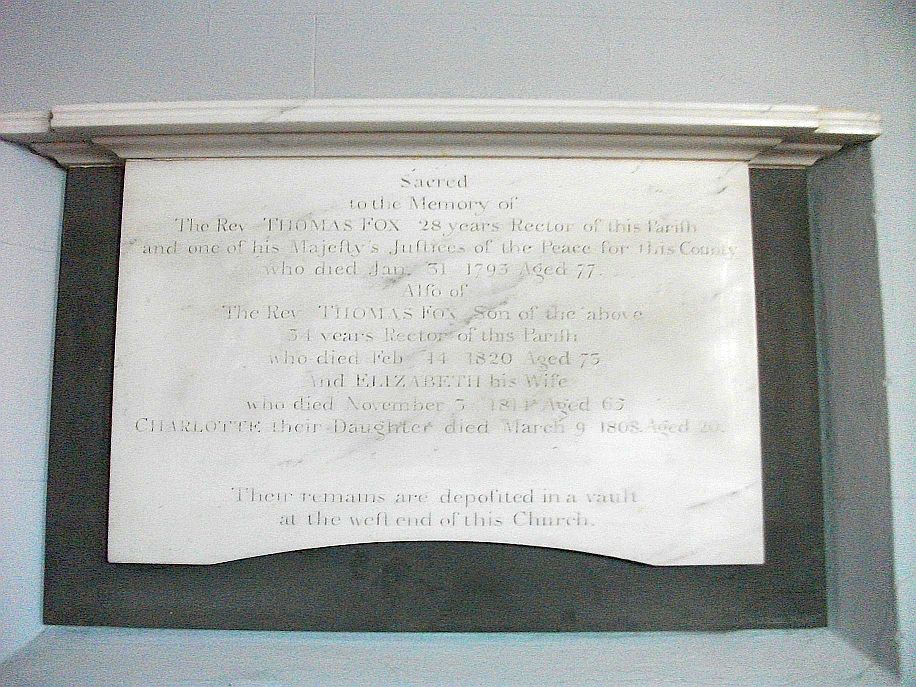 Sacred
to the Memory of
The Rev THOMAS FOX 28 years Rector of this Pariſh
and one of his Majeſty's Juſtices of the Peace for this County
who died Jan. 31 1793 Aged 77.
Alſo of
The Rev THOMAS FOX Son of the above
34 years Rector of this Pariſh
who died Feb 14 1820 Aged 75
And ELIZABETH his Wife
who died November 3 Aged 63
CHARLOTTE their Daughter died March 9 1808 Aged 20.
Their remains are depoſited in a vault
at the weſt end of this Church.